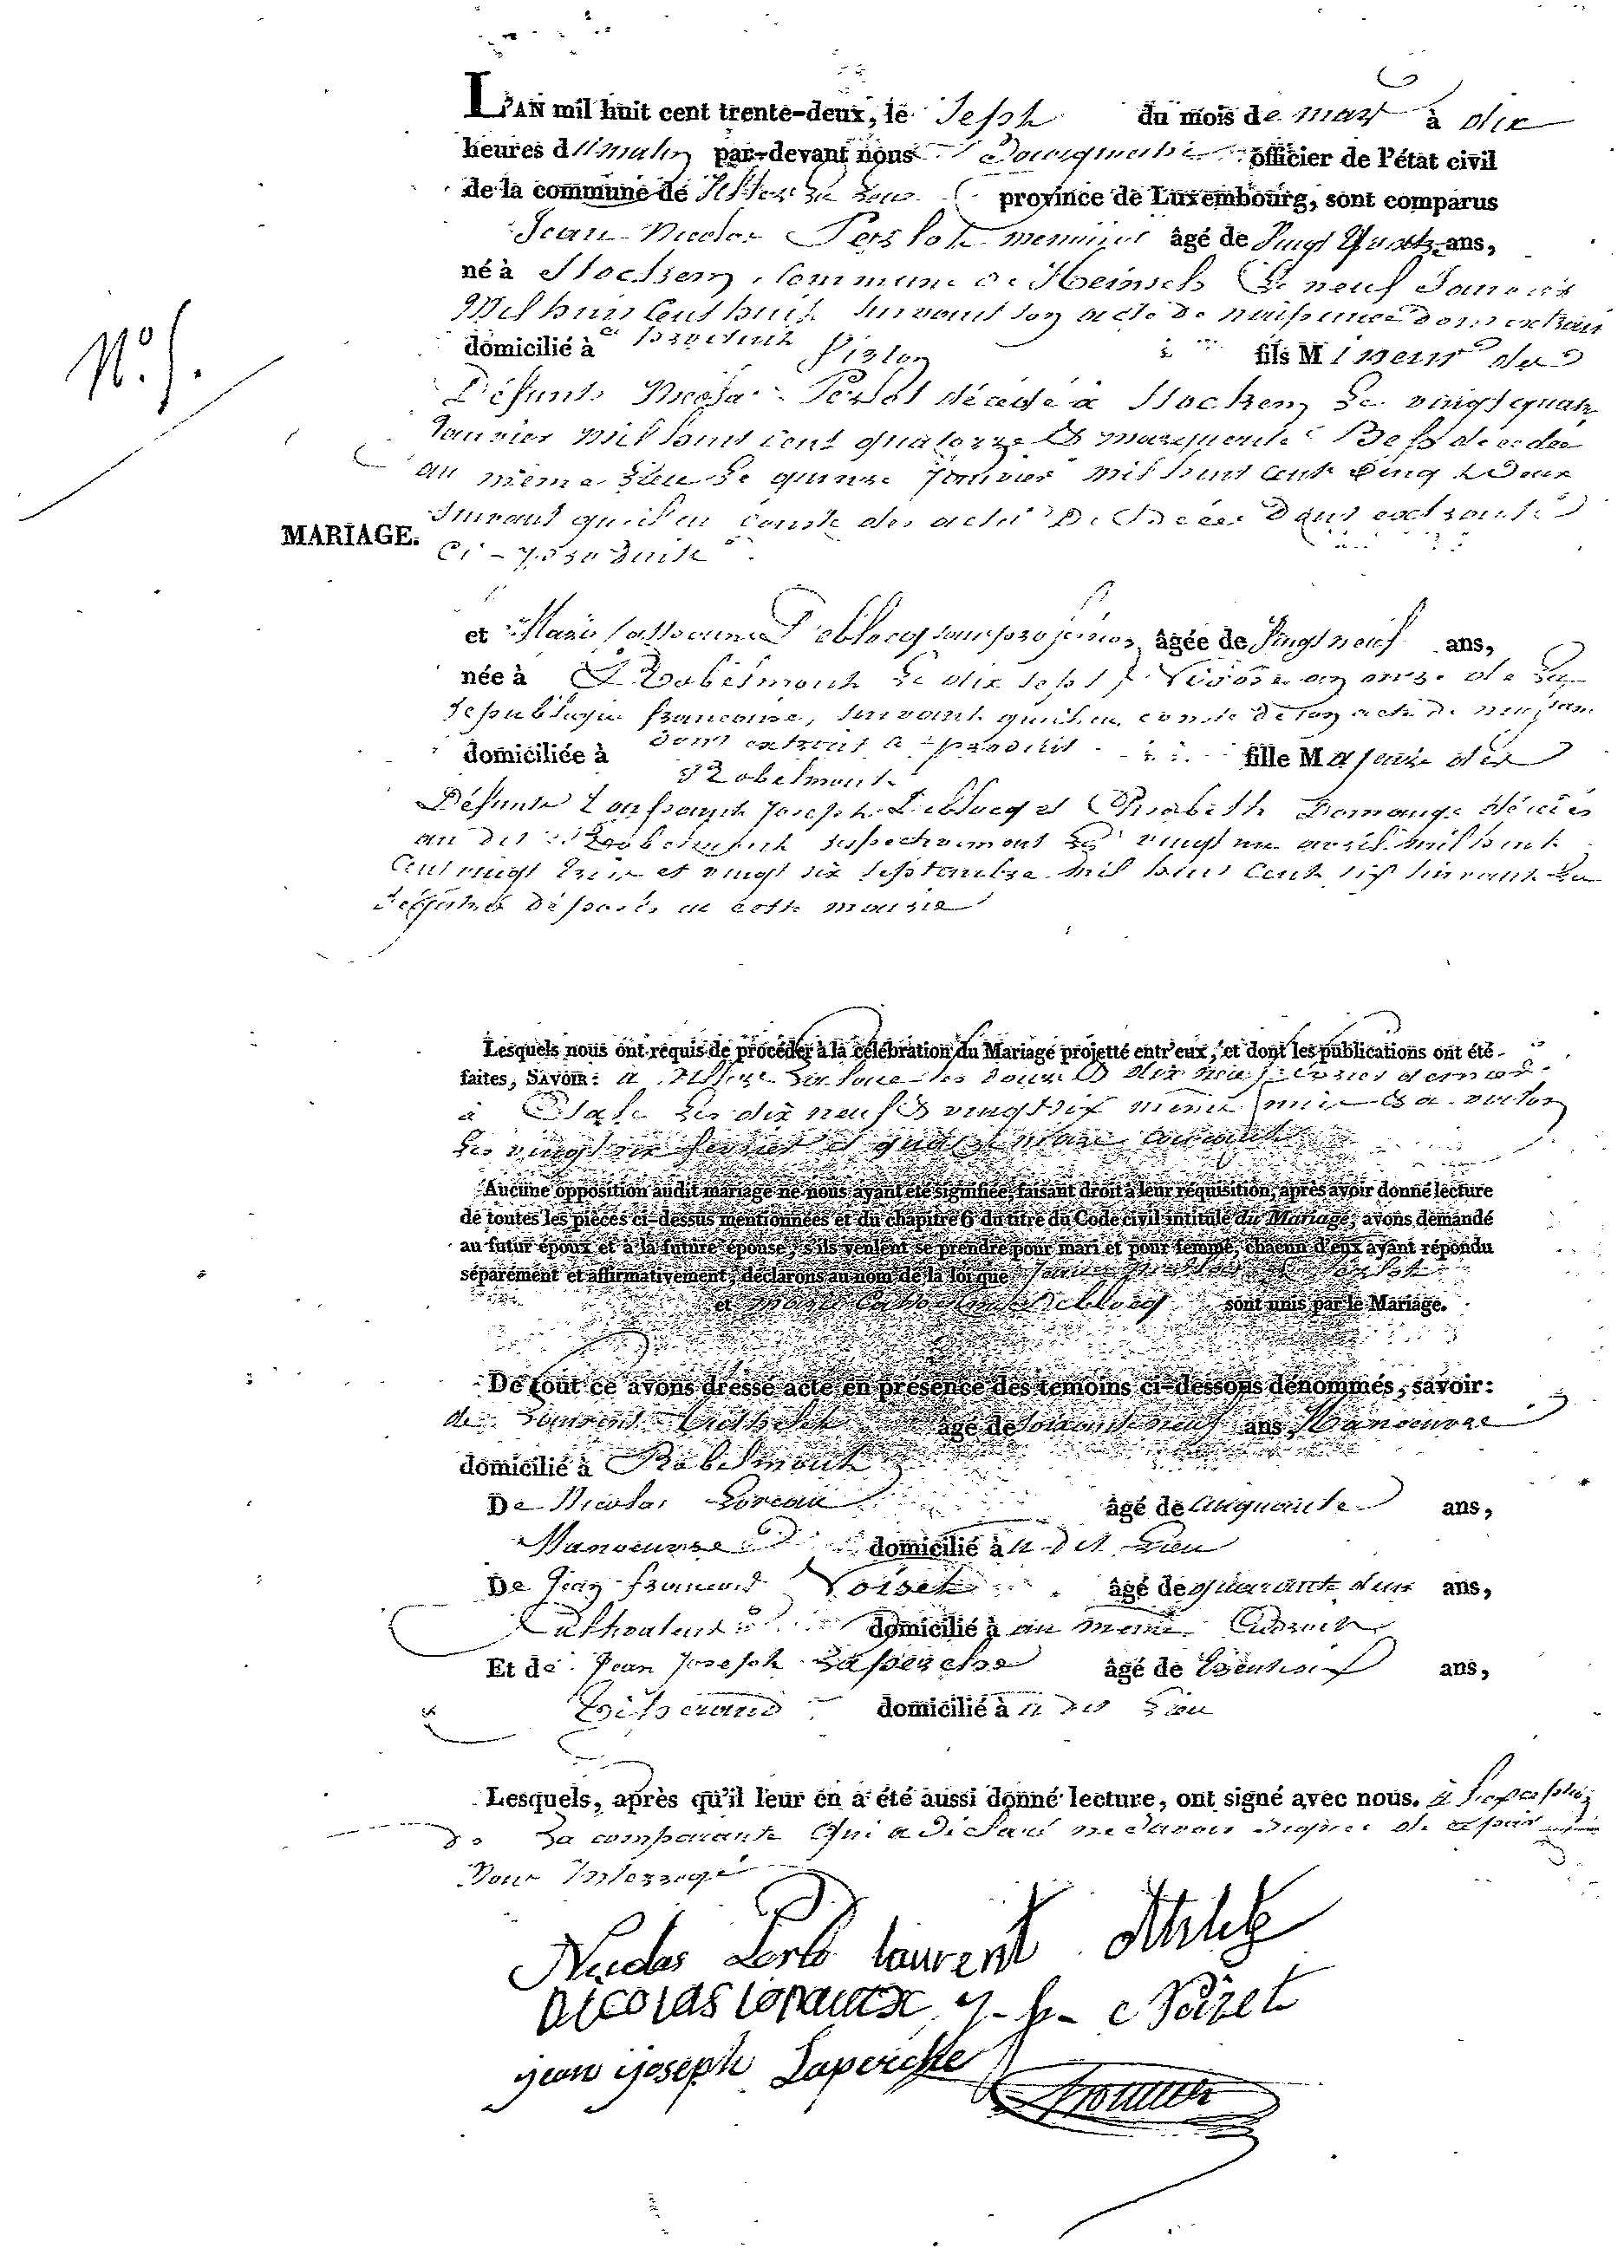 L'AN mil huit cent trente-deux, le Sept du mois de mars à dix
heures du matin par-devant nous officier de l'état civil
de la commune de province de Luxembourg, sont comparus
Jean Nicolas Perslot menuisier âgé de Vingt Quatre ans,
né à Stockem, Commune de Heinsch Le neuf Janvier
Mil huit Cent huit suivant son acte de naissance dont extrait
a produit
domicilié à Virton fils Mineur des
Défunts Nicolas Perslot décédé à Stockem Le vingt quatre
Janvier mil huit cent quatorze & marguerite décédée
au même Lieu Le quinze Janvier mil huit cent Cinq
Suivant qu'il en conste des actes De Décès Dont extraits
Ci-produits
N.° 5.
MARIAGE.
et Marie Catherine Deblocq sans profession âgée de Vingt neuf ans,
née à Robelmont Le dix sept Nivôse an onze de La
république francaise, suivant qu'il en conste de son acte de
dont extrait a produit
domiciliée à Robelmont fille Majeure des
Défunts Joseph Deblocq et Elisabeth Domange décédés
au dit Robelmont respectivement Les vingt un avril mil huit
Cent vingt trois et vingt six septembre mil huit Cent six suivant Les
registres déposés au cette mairie
Lesquels nous ont requis de procéder à la célébration du Mariage projetté entr'eux, et dont les publications ont été
faites, SAVOIR: à les douze & dix neuf février dernier
à Etale Les dix neuf & vingt six même mois & à virton
Les vingt six février et quatre mars courant
Aucune opposition audit mariage ne nous ayant été signifiée, faisant droit à leur réquisition, après avoir donné lecture
de toutes les pièces ci-dessus mentionnées et du chapitre 6 du titre du Code civil intitulé du Mariage, avons demandé
au futur époux et à la future épouse, s'ils veulent se prendre pour mari et pour femme, chacun d'eux ayant répondu
séparément et affirmativement, déclarons au nom de la loi que Jean Nicolas Perslot
et Marie Catherine Deblocq sont unis par le Mariage.
De tout ce avons dressé acte en présence des temoins ci-dessous dénommés, savoir:
de Laurent âgé de soixante neuf ans, Manoeuvre
domicilié à Robelmont
De Nicolas Loreau âgé de cinquante ans,
Manoeuvre domicilié à u dit Lieu
De Jean francois Poiret âgé de quarante deux ans,
domicilié à au même Endroit
Et de Jean Joseph Laperche âgé de trente six ans,
Tisserand domicilié à u dit Lieu
Lesquels, après qu'il leur en a été aussi donné lecture, ont signé avec nous. à l'exception
de La comparante Qui a Déclaré ne Savoir signer de ce par
Nous Interrogé
Nicolas Perslo laurent
nicolas loraux j-f- Poiret
jean joseph Laperche